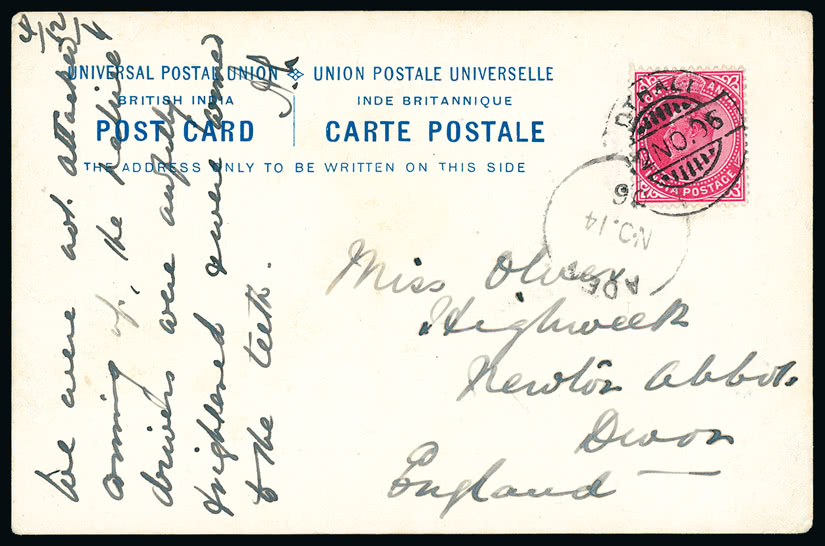 UNIVERSAL POSTAL UNION UNION POSTALE UNIVERSELLE
BRITISH INDIA INDE BRITANNIQUE
POST CARD CARTE POSTALE
THE ADDRESS ONLY TO BE WRITTEN ON THIS SIDE
NO. 06
INDIA POSTAGE
NO. 14
06
ADEN
Miss Oliver
Highweek
Newton Abbot
Devon
England
We were not attacked
coming up, the native
drivers were awfully
frightened & were armed
to the teeth.